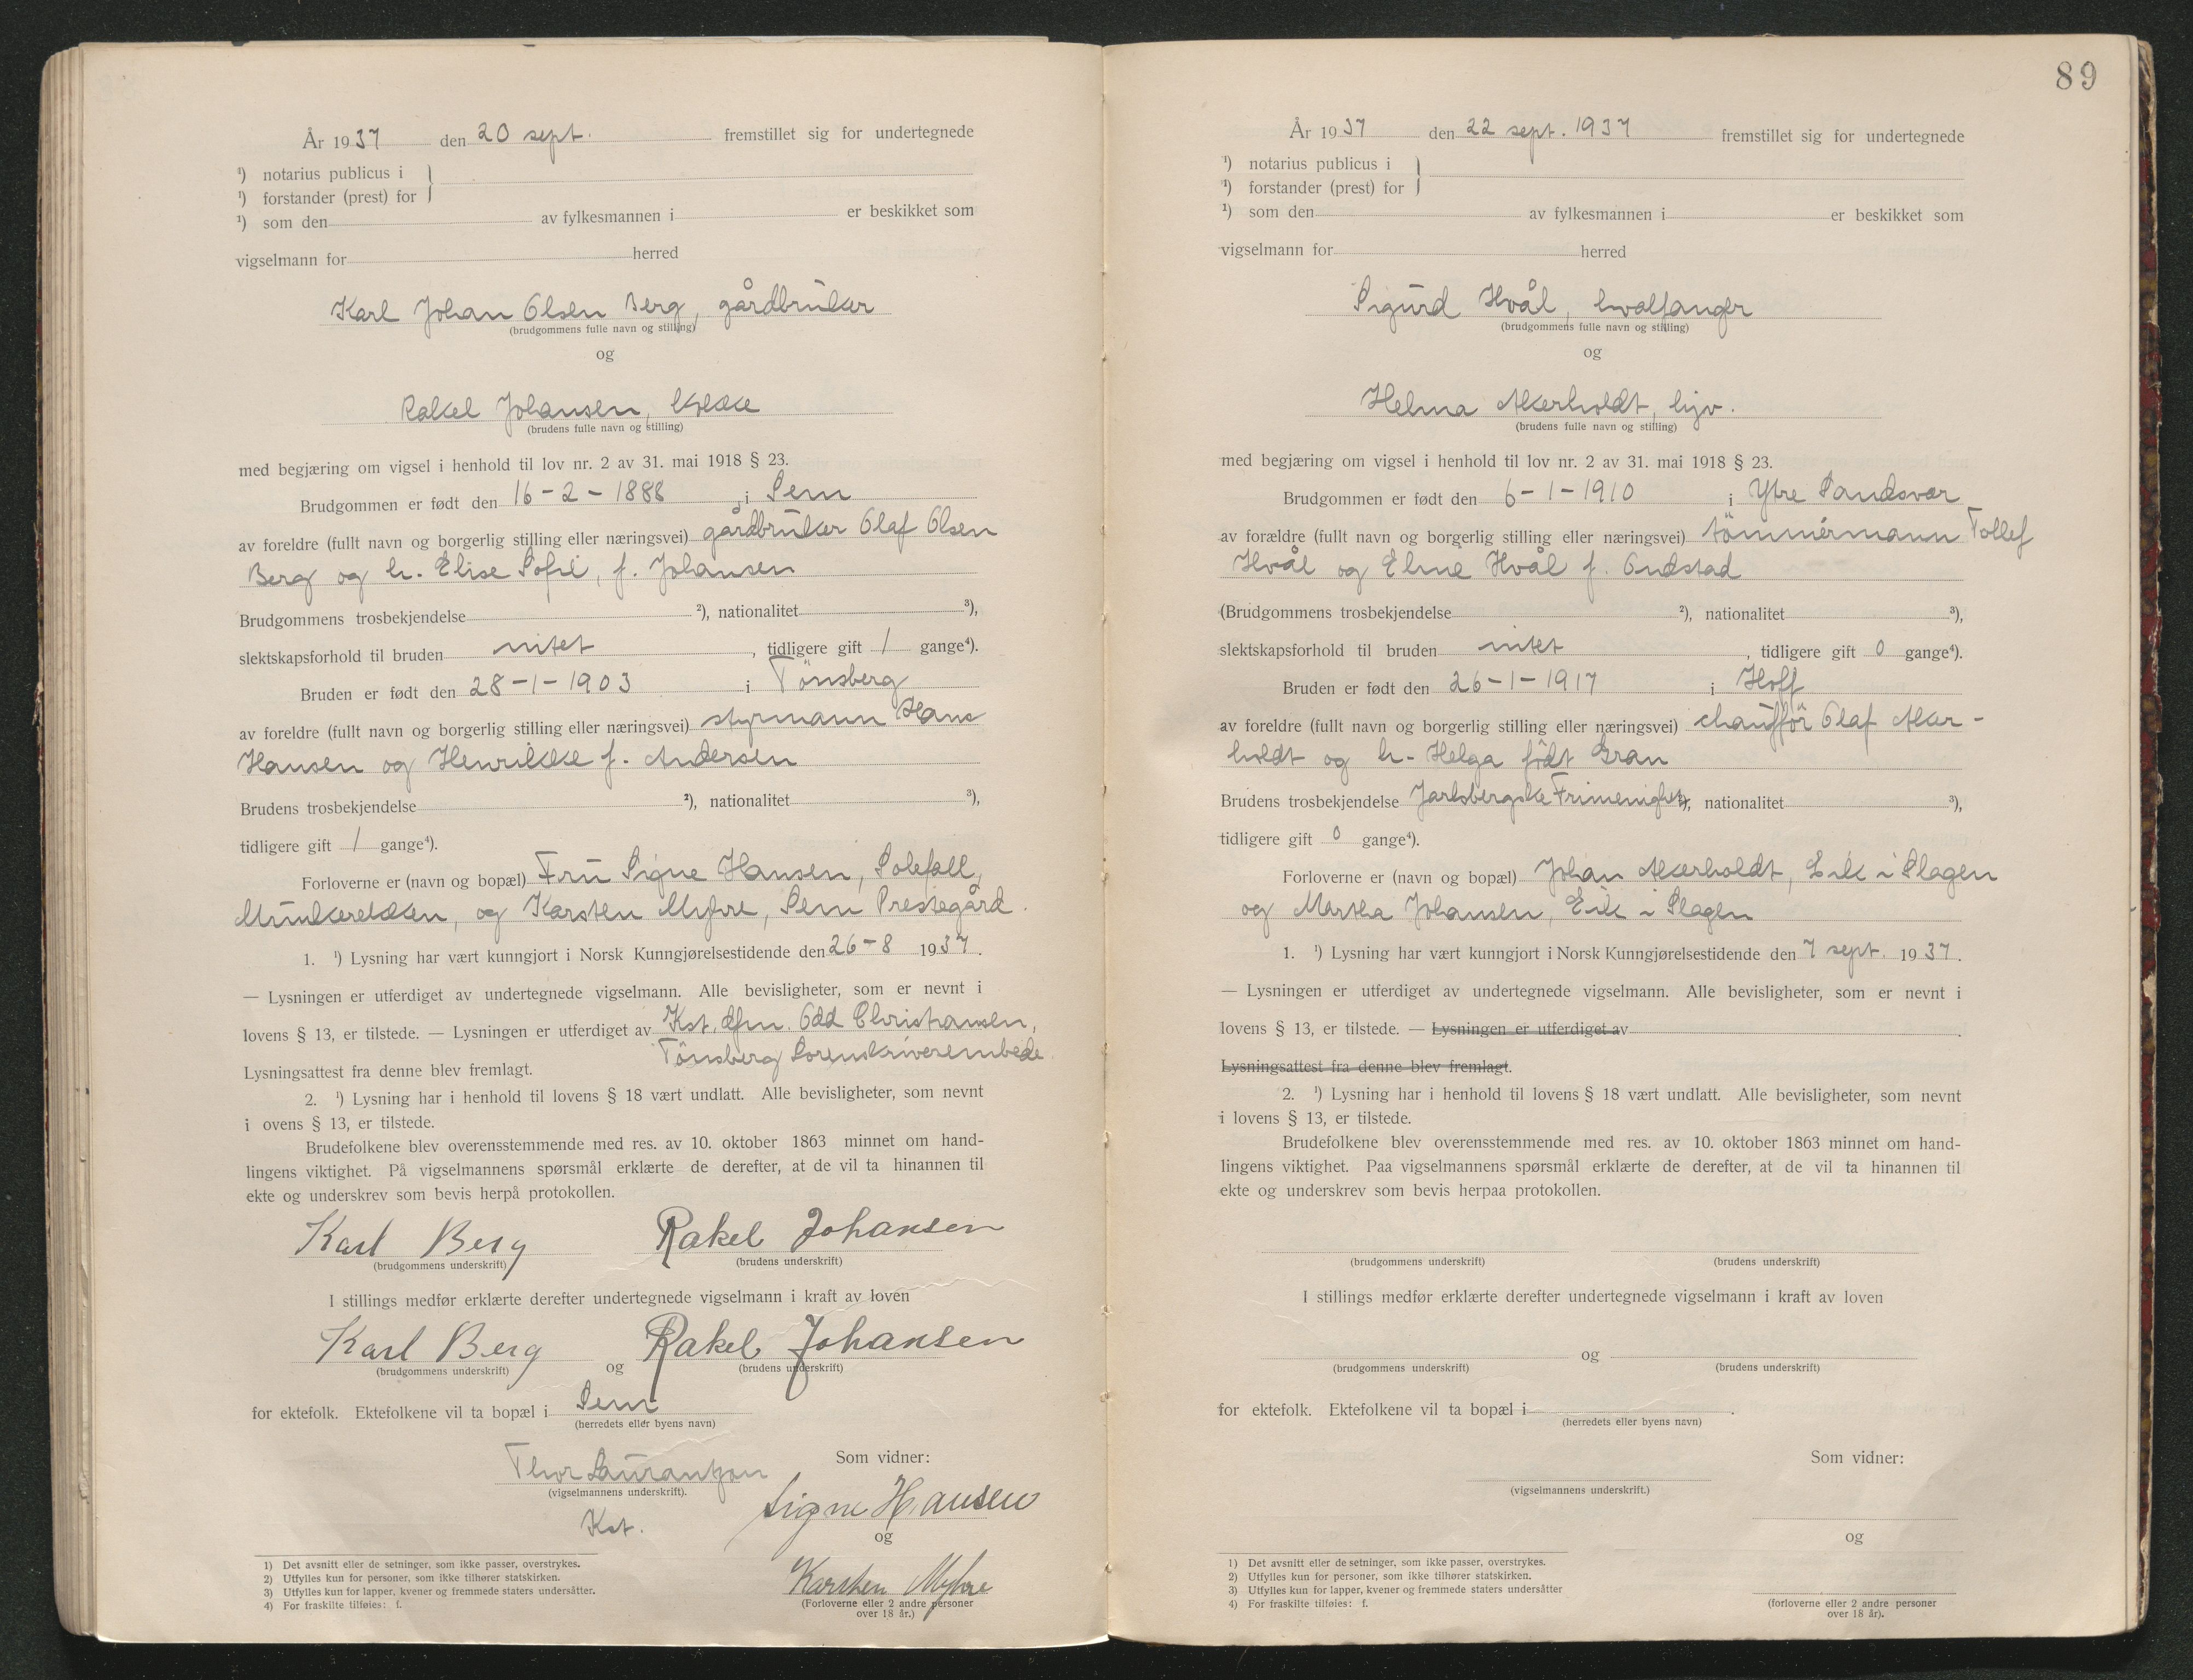 År 1937 den 20 sept. fremstillet sig for undertegnede
¹) notarius publicus i
¹) forstander (prest) for
¹) som den av fylkesmannen i er beskikket som
vigselmann for herred
Karl Johan Olsen Berg, gårdbruker
(brudgommens fulle navn og stilling)
og
Rakel Johansen, kokke
(brudens fulle navn og stilling)
med begjæring om vigsel i henhold til lov nr. 2 av 31. mai 1918 § 23.
Brudgommen er født den 16-2-1888 i Sem
av foreldre (fullt navn og borgerlig stilling eller næringsvei) gårdbruker Olaf Olsen
Berg og h. Elise Sofie, f. Johansen
Brudgommens trosbekjendelse ²), nationalitet ³),
slektskapsforhold til bruden intet, tidligere gift 1 gange⁴).
Bruden er født den 28-1-1903 i Tönsberg
av foreldre (fullt navn og borgerlig stilling eller næringsvei) styrmann Hans
Hansen og Henrikke f. Andersen
Brudens trosbekjendelse ²), nationalitet ³),
tidligere gift 1 gange⁴).
Forloverne er (navn og bopæl) Fru Signe Hansen, Solefall,
Munkerekken, og Karsten Myhre, Sem Prestegård.
1. ¹) Lysning har vært kunngjort i Norsk Kunngjørelsestidende den 26-8 1937.
— Lysningen er utferdiget av undertegnede vigselmann. Alle bevisligheter, som er nevnt i
lovens § 13, er tilstede. — Lysningen er utferdiget av Kst. dfm. Odd Christiansen,
Tönsberg Sorenskriverembede
Lysningsattest fra denne blev fremlagt.
2. ¹) Lysning har i henhold til lovens § 18 vært undlatt. Alle bevisligheter, som nevnt
i ovens § 13, er tilstede.
Brudefolkene blev overensstemmende med res. av 10. oktober 1863 minnet om hand-
lingens viktighet. På vigselmannens spørsmål erklærte de derefter, at de vil ta hinannen til
ekte og underskrev som bevis herpå protokollen.
Karl Berg Rakel Johansen
(brudgommens underskrift) (brudens underskrift)
I stillings medfør erklærte derefter undertegnede vigselmann i kraft av loven
Karl Berg og Rakel Johansen
(brudgommens underskrift) (brudens underskrift)
for ektefolk. Ektefolkene vil ta bopæl i Sem
(herredets eller byens navn)
Som vidner:
Thor Laurantzon
(vigselmannens underskrift).
Kst.
Signe Hansen
og
Karsten Myhre
(Forloverne eller 2 andre personer
over 18 år.)
1) Det avsnitt eller de setninger, som ikke passer, overstrykes.
2) Utfylles kun for personer, som ikke tilhører statskirken.
3) Utfylles kun for lapper, kvener og fremmede staters undersåtter.
4) For fraskilte tilføies: f.
89
År 1937 den 22 sept. 1937 fremstillet sig for undertegnede
¹) notarius publicus i
¹) forstander (prest) for
¹) som den av fylkesmannen i er beskikket som
vigselmann for herred
Sigurd Hvål, hvalfanger
(brudgommens fulle navn og stilling)
og
Helma Akerholdt, hjv.
(brudens fulle navn og stilling)
med begjæring om vigsel i henhold til lov nr. 2 av 31. mai 1918 § 23.
Brudgommen er født den 6-1-1910 i Ytre Sandsvær
av forældre (fullt navn og borgerlig stilling eller næringsvei) tömmermann Tollef
Hvål og Eline Hvål f. Ondstad
(Brudgommens trosbekjendelse ²), nationalitet ³),
slektskapsforhold til bruden intet, tidligere gift 0 gange⁴).
Bruden er født den 26-1-1917 i Hoff
av foreldre (fullt navn og borgerlig stilling eller næringsvei) chauffør Olaf Aker-
holdt og h. Helga født Gran
Brudens trosbekjendelse Jarlsbergske Frimenighet ²), nationalitet ³),
tidligere gift 0 gange⁴).
Forloverne er (navn og bopæl) Johan Akerholdt, Eik i Slagen
og Martha Johansen, Eik i Slagen
1. ¹) Lysning har vært kunngjort i Norsk Kunngjørelsestidende den 7 sept. 1937.
— Lysningen er utferdiget av undertegnede vigselmann. Alle bevisligheter, som er nevnt i
lovens § 13, er tilstede. — Lysningen er utferdiget av
Lysningsattest fra denne blev fremlagt.
2. ¹) Lysning har i henhold til lovens § 18 vært undlatt. Alle bevisligheter, som nevnt
i lovens § 13, er tilstede.
Brudefolkene blev overensstemmende med res. av 10. oktober 1863 minnet om hand-
lingens viktighet. Paa vigselmannens spørsmål erklærte de derefter, at de vil ta hinannen til
ekte og underskrev som bevis herpaa protokollen.
(brudgommens underskrift) (brudens underskrift)
I stillings medfør erklærte derefter undertegnede vigselmann i kraft av loven
og
(brudgommens underskrift) (brudens underskrift)
for ektefolk. Ektefolkene vil ta bopæl i .
(herredets eller byens navn)
Som vidner:
(vigselmannens underskrift.)
og
(forloverne eller 2 andre personer
over 18 år).
1) Det avsnitt eller de setninger, som ikke passer, overstrykes.
2) Utfylles kun for personer, som ikke tilhører statskirken.
3) Utfylles kun for lapper, kvener og fremmede staters undersåtter
4) For fraskilte tilføies: f.